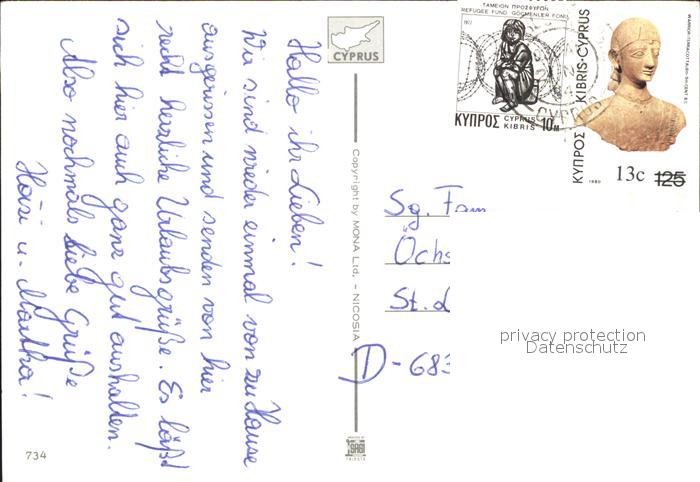 Hallo ihr Lieben!
Wir sind wieder einmal von zu Hause
ausgerissen und senden von hier
recht herzliche Urlaubsgrüße. Es läßt
sich hier auch ganz gut aushalten.
Also nochmals liebe Grüße
u. Martha!
734
CYPRUS
Copyright by MONA Ltd. - NICOSIA
ΤΑΜΕΙΟΝ ΠΡΟΣΦΥΓΩΝ
REFUGEE FUND GÖÇMENLER FONU
1977
ΚΥΠΡΟΣ CYPRUS KIBRIS 10M
ΚΥΠΡΟΣ KIBRIS-CYPRUS
1980
13c 125
Sg. Fam
Öchs
St. L
D-683
privacy protection
Datenschutz